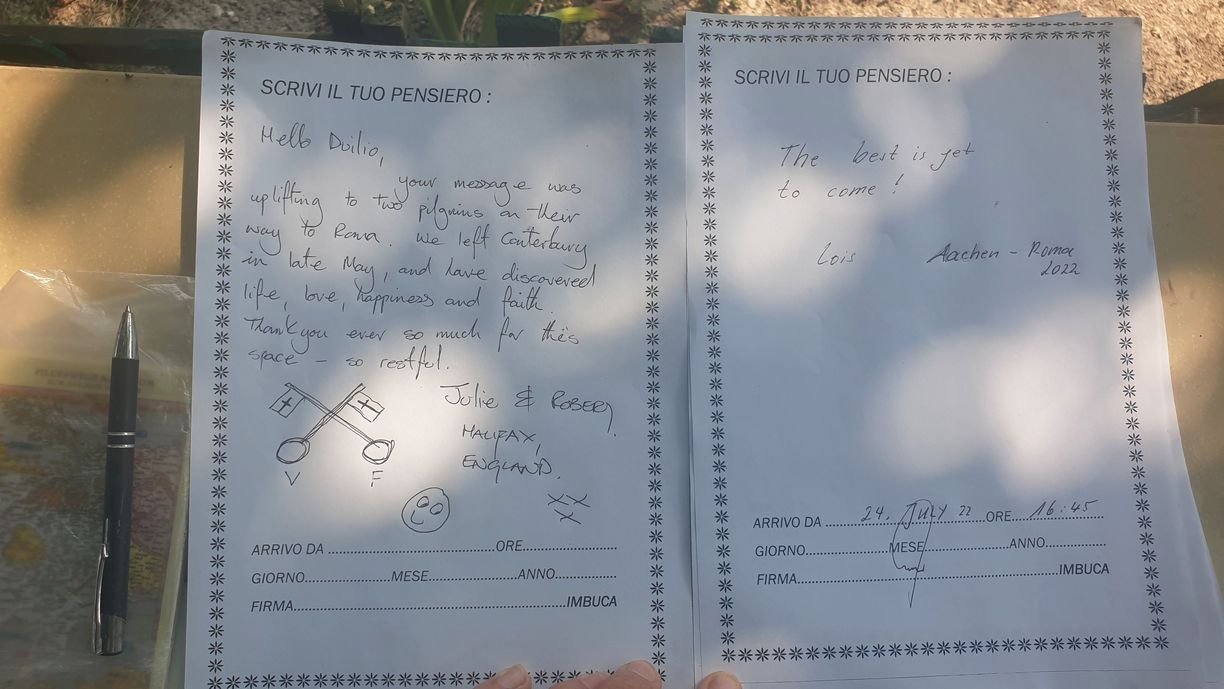 SCRIVI IL TUO PENSIERO :
Hello Duilio,
your message was
uplifting to two pilgrims on their
way to Roma. We left Canterbury
in late May, and have discovered
life, love, happiness and faith.
Thank you ever so much for this
space – so restful.
Julie & ROBERT.
HALIFAX,
ENGLAND.
V F
ARRIVO DA ........................................ORE.......................
GIORNO.....................MESE.....................ANNO...............
FIRMA...................................................................IMBUCA
SCRIVI IL TUO PENSIERO :
The best is yet
to come !
Lois Aachen – Roma
2022
ARRIVO DA 24. JULY 22 ORE 16:45
GIORNO.....................MESE.....................ANNO...............
FIRMA...................................................................IMBUCA